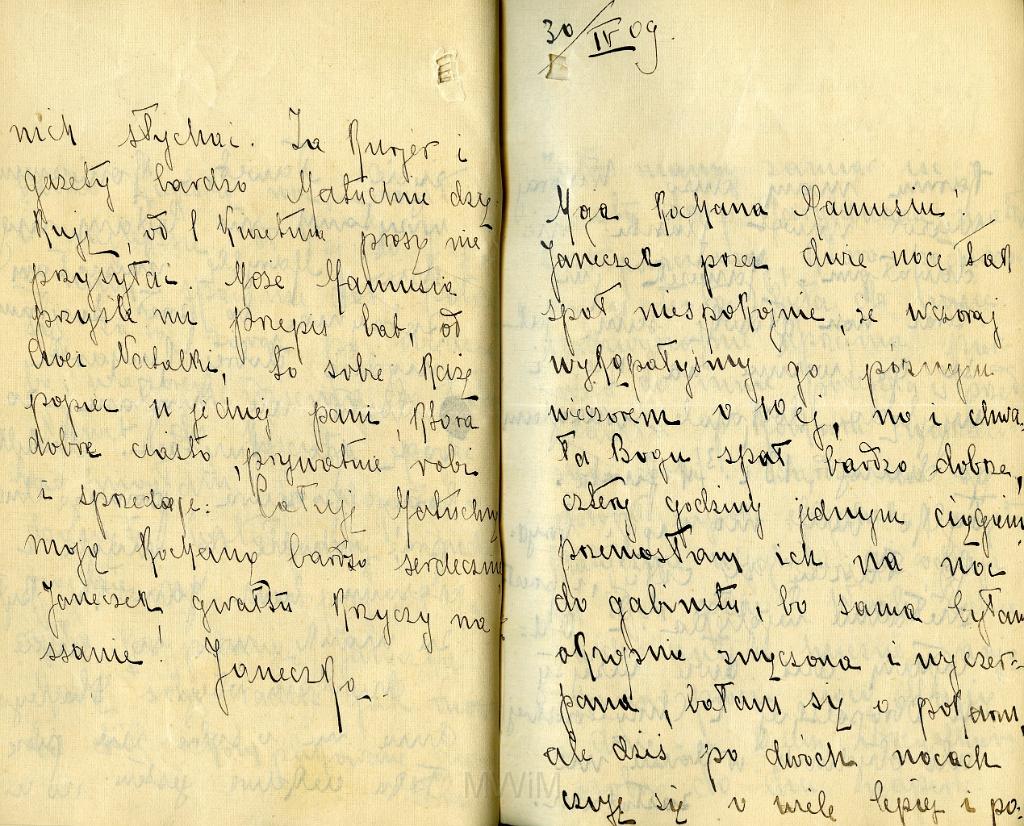 nich słychać. Za Kurjer i
gazety bardzo Matuchnie dzię-
kuję, od 1 Kwietnia proszę nie
przysyłać. Może Mamusia
przyśle mi przepis bab, od
Cioci Natalki, to sobie każę
popiec u jednej pani, która
dobre ciasto, prywatnie robi
i sprzedaje. Całuję Matuchnę
moją kochaną bardzo serdecznie
Janeczek gwałtu krzyczy na
ssanie! Janeczka
30/IV 09.
Moja kochana Mamusiu!
Janeczek przez dwie noce tak
spał niespokojnie, że wczoraj
wykąpałyśmy go późnym
wieczorem o 10ej, no i chwa-
ła Bogu spał bardzo dobrze,
cztery godziny jednym ciągiem
przeniosłam ich na noc
do gabinetu, bo sama byłam
okropnie zmęczona i wyczer-
pana, bałam się o pokarm,
ale dziś po dwóch nocach
czuję się o wiele lepiej i po-
MWiM